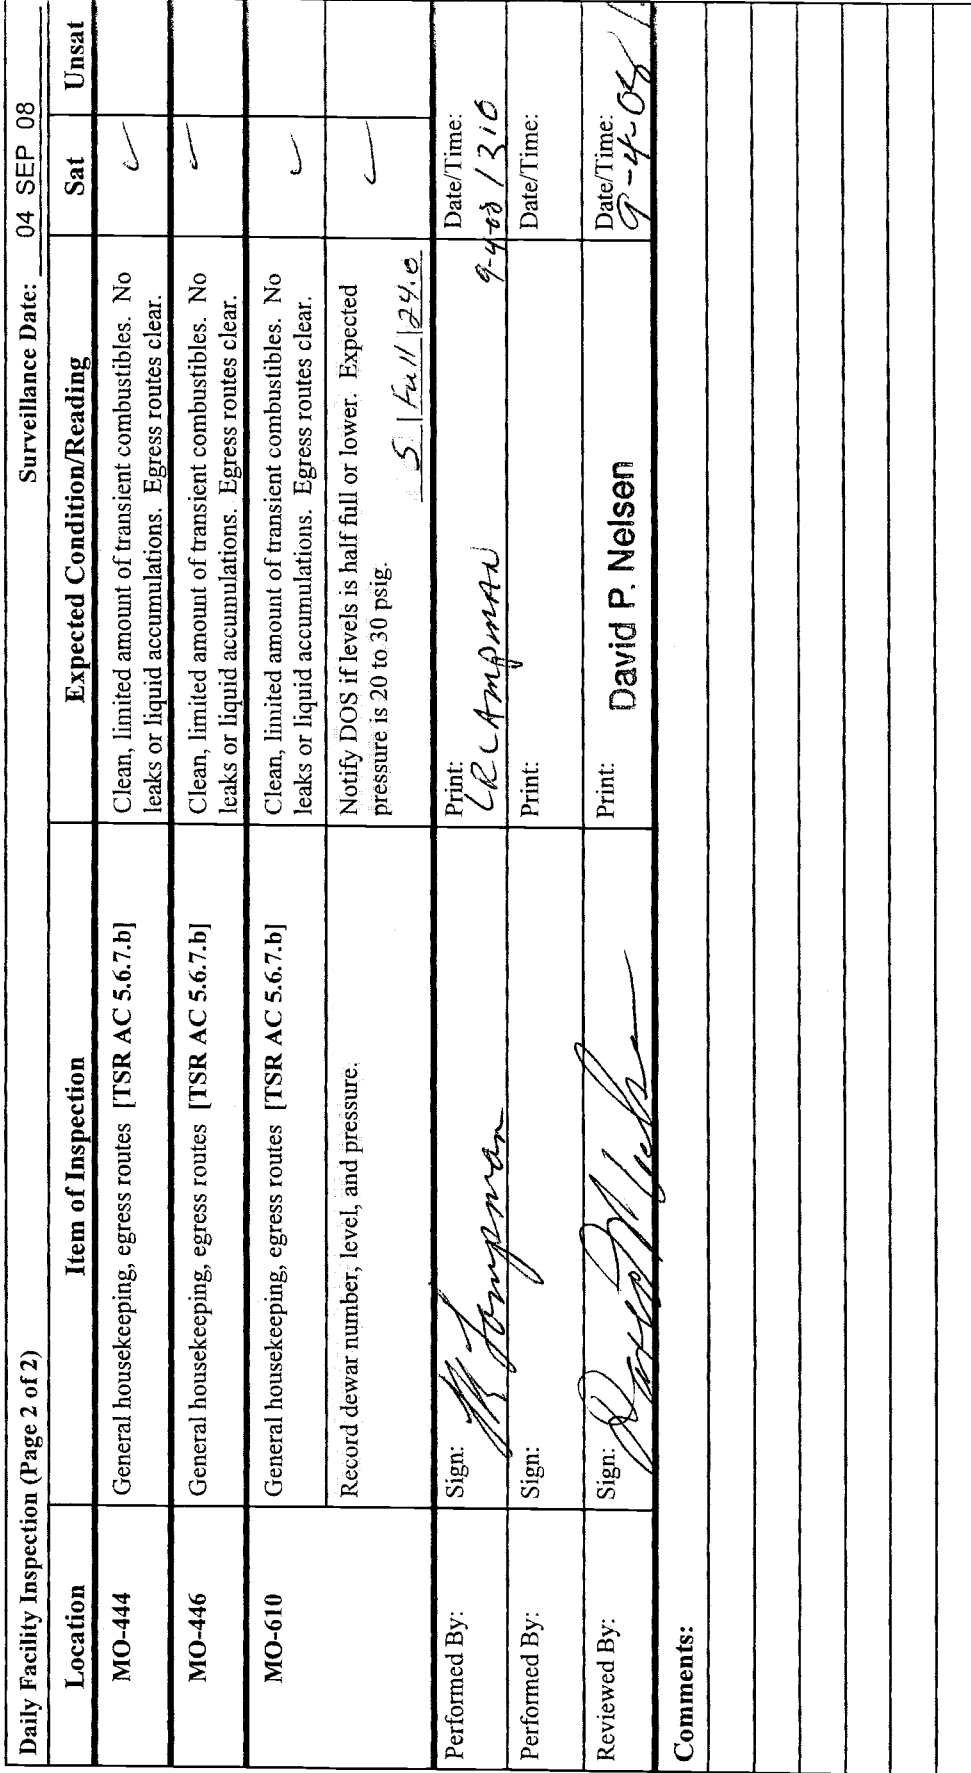 Daily Facility Inspection (Page 2 of 2) Surveillance Date: 04 SEP 08
Location Item of Inspection Expected Condition/Reading Sat Unsat
MO-444 General housekeeping, egress routes [TSR AC 5.6.7.b] Clean, limited amount of transient combustibles. No
leaks or liquid accumulations. Egress routes clear.
MO-446 General housekeeping, egress routes [TSR AC 5.6.7.b] Clean, limited amount of transient combustibles. No
leaks or liquid accumulations. Egress routes clear.
MO-610 General housekeeping, egress routes [TSR AC 5.6.7.b] Clean, limited amount of transient combustibles. No
leaks or liquid accumulations. Egress routes clear.
Record dewar number, level, and pressure. Notify DOS if levels is half full or lower. Expected
pressure is 20 to 30 psig. 5 | Full | 24.0
Performed By: Sign: Print: Date/Time:
9-4-08 / 1310
Performed By: Sign: Print: Date/Time:
Reviewed By: Sign: Print: David P. Nelsen Date/Time:
9-4-08
Comments: